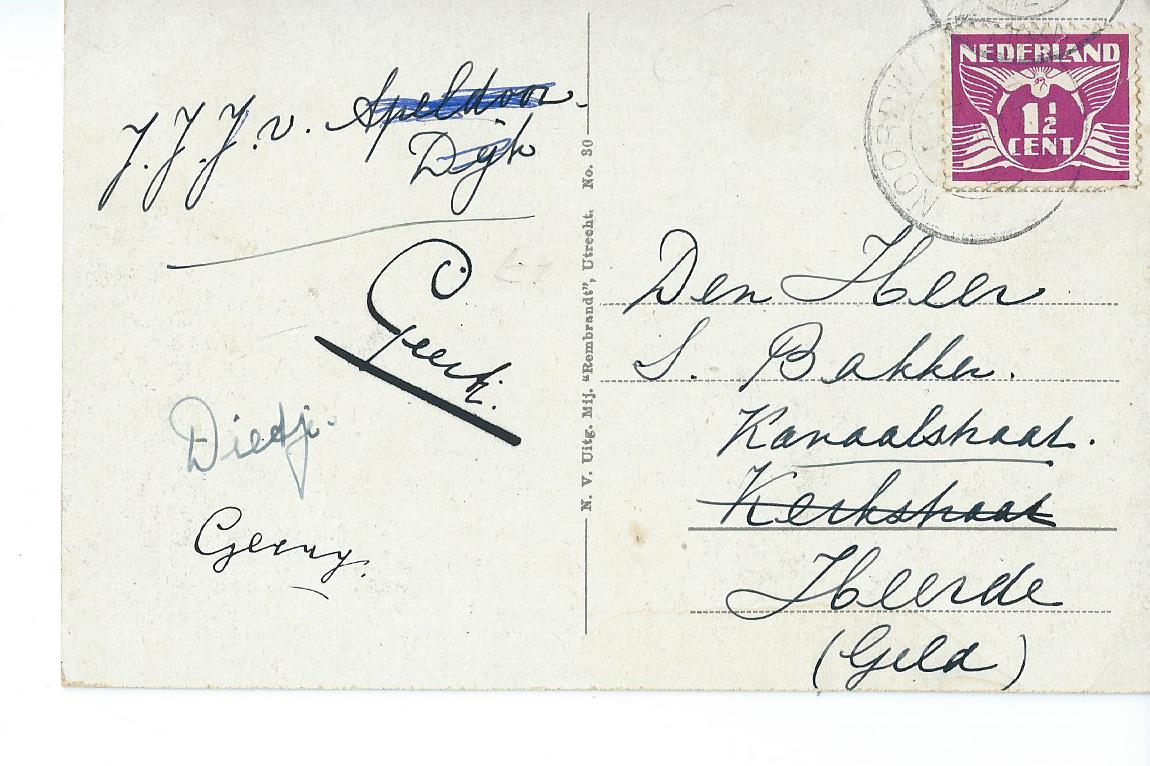 J. J. J. v. Apeldoorn.
Dijk
Geert.
Dietji.
Gerny.
N. V. Uitg. Mij. "Rembrandt", Utrecht. No. 30
NEDERLAND
1½
CENT
NOORDWIJ
Den Heer
S. Bakker.
Kanaalstraat.
Kerkstraat
Heerde
(Geld)